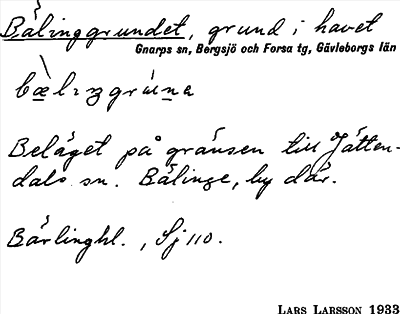 Bälinggrundet, grund i havet
Gnarps sn, Bergsjö och Forsa tg, Gävleborgs län
Beläget på gränsen till Jätten-
dals sn. Bälinge, by där.
Bärlinghl., Sj 110.
LARS LARSSON 1933